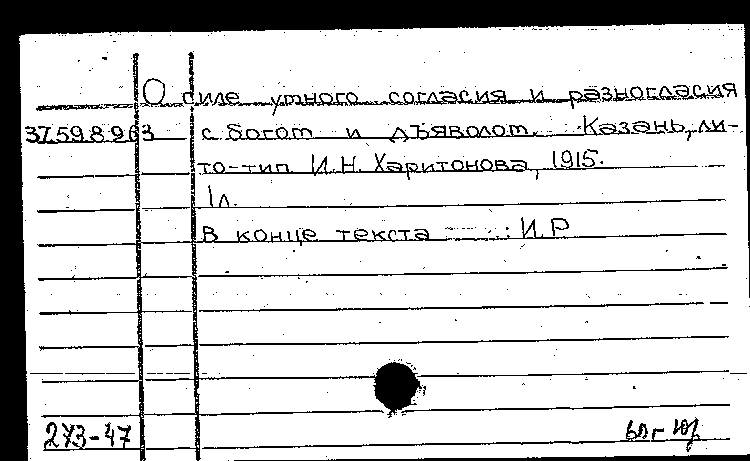 О силе умного согласия и разногласия
37.59.8.963 с богом и дъяволом. Казань, ли-
то-тип. И.Н. Харитонова, 1915.
1л.
В конце текста : И.Р
273-47